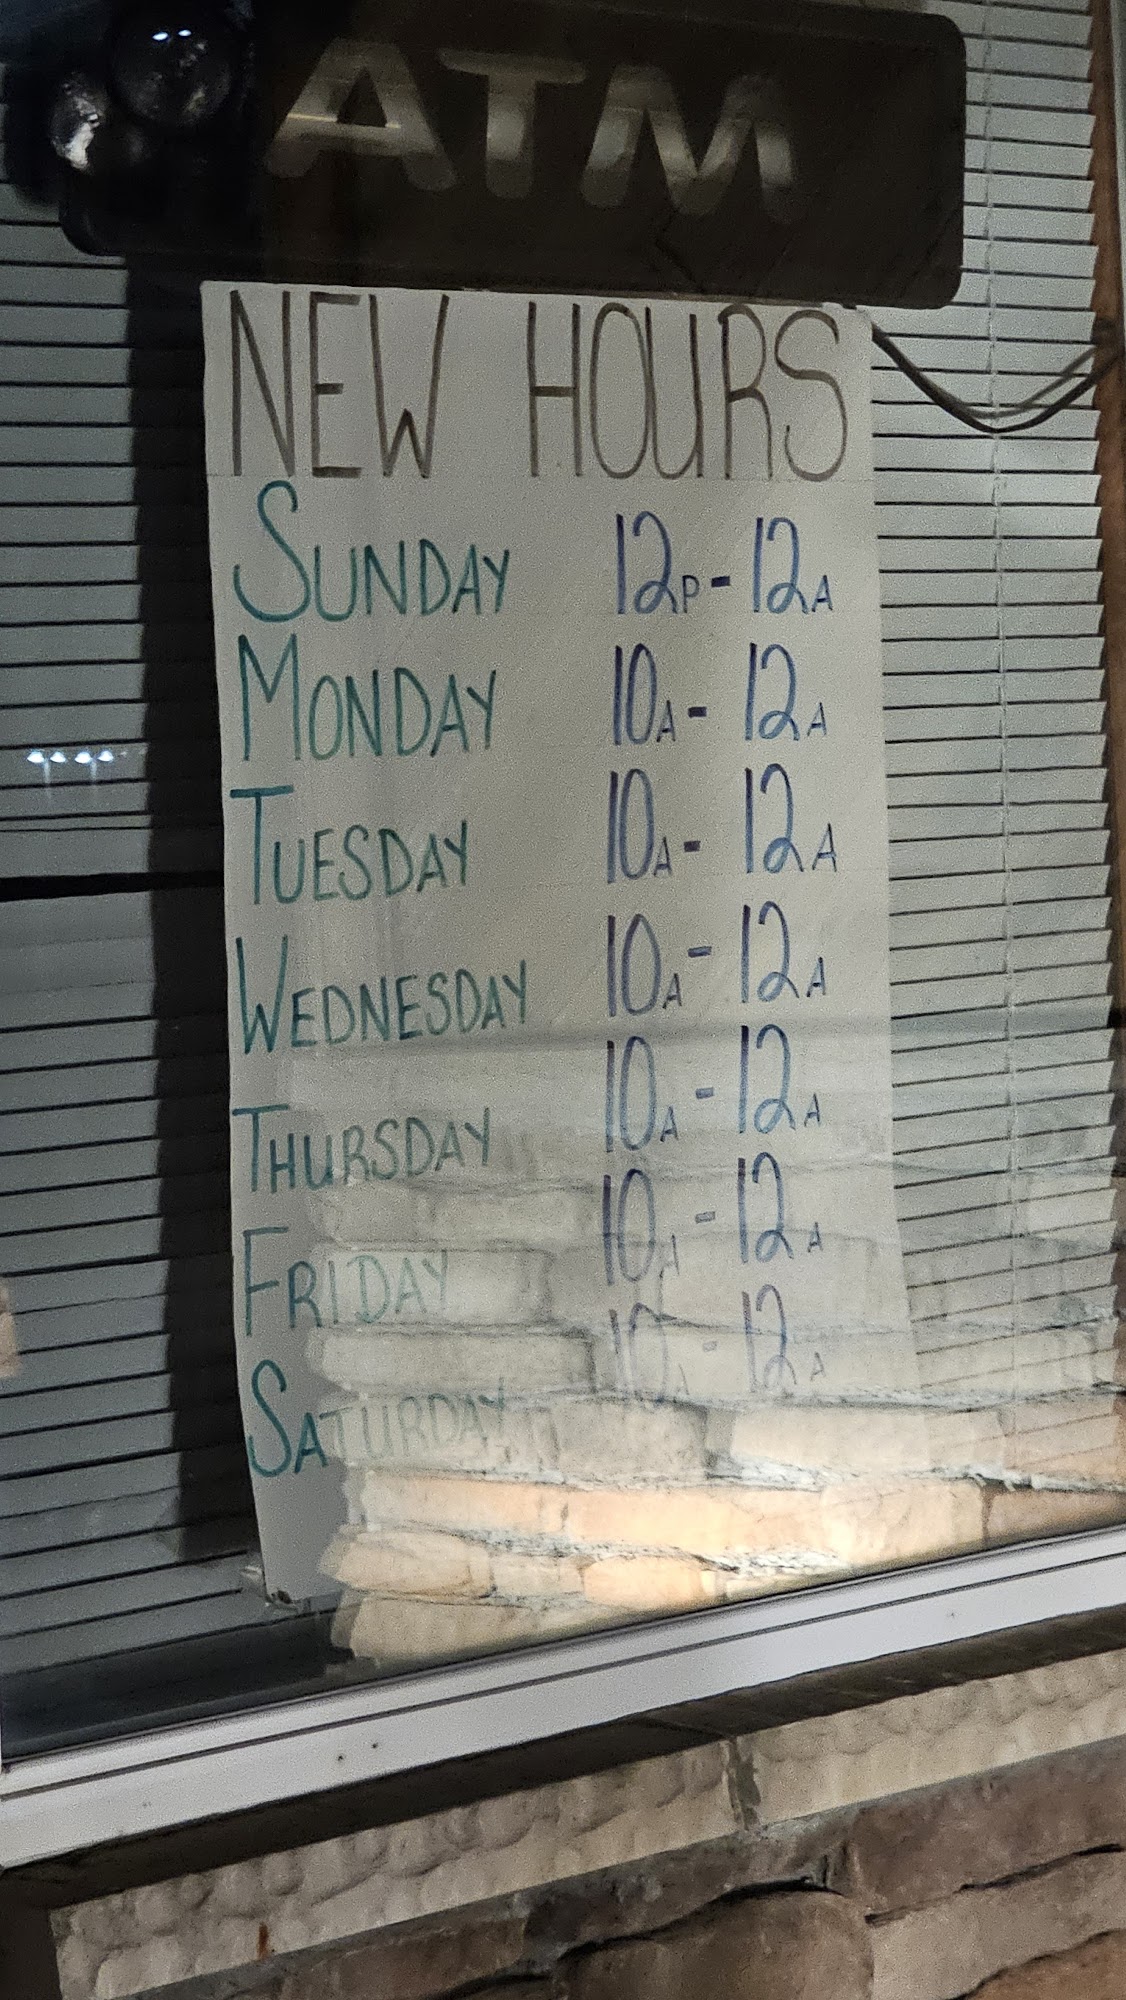 ATM
NEW HOURS
SUNDAY 12P - 12A
MONDAY 10A - 12A
TUESDAY 10A - 12A
WEDNESDAY 10A - 12A
THURSDAY 10A - 12A
FRIDAY 10A - 12A
SATURDAY 10A - 12A